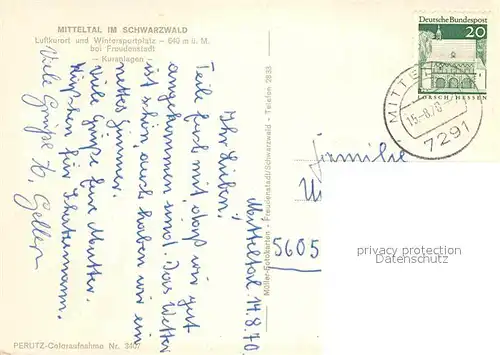 MITTELTAL IM SCHWARZWALD
Luftkurort und Wintersportplatz – 640 m ü. M.
bei Freudenstadt
– Kuranlagen –
Deutsche Bundespost
20
LORSCH/HESSEN
15.-8.70
7291
Mitteltal, 14.8.70
Ihr Lieben!
Teile Euch mit, daß wir gut
angekommen sind. Das Wetter
ist schön, auch haben wir ein
nettes Zimmer.
Viele Grüße Eure Mutter.
Küßchen für
Viele Grüße
Müller-Fotokarten - Freudenstadt/Schwarzwald - Telefon 2833
Familie
5605
privacy protection
Datenschutz
PERUTZ-Coloraufnahme Nr. 3407